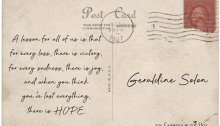 Post Card
1957
A lesson for all of us is that
for every loss, there is victory,
for every sadness, there is joy,
and when you think
you've lost everything,
there is HOPE.
Geraldine Solon